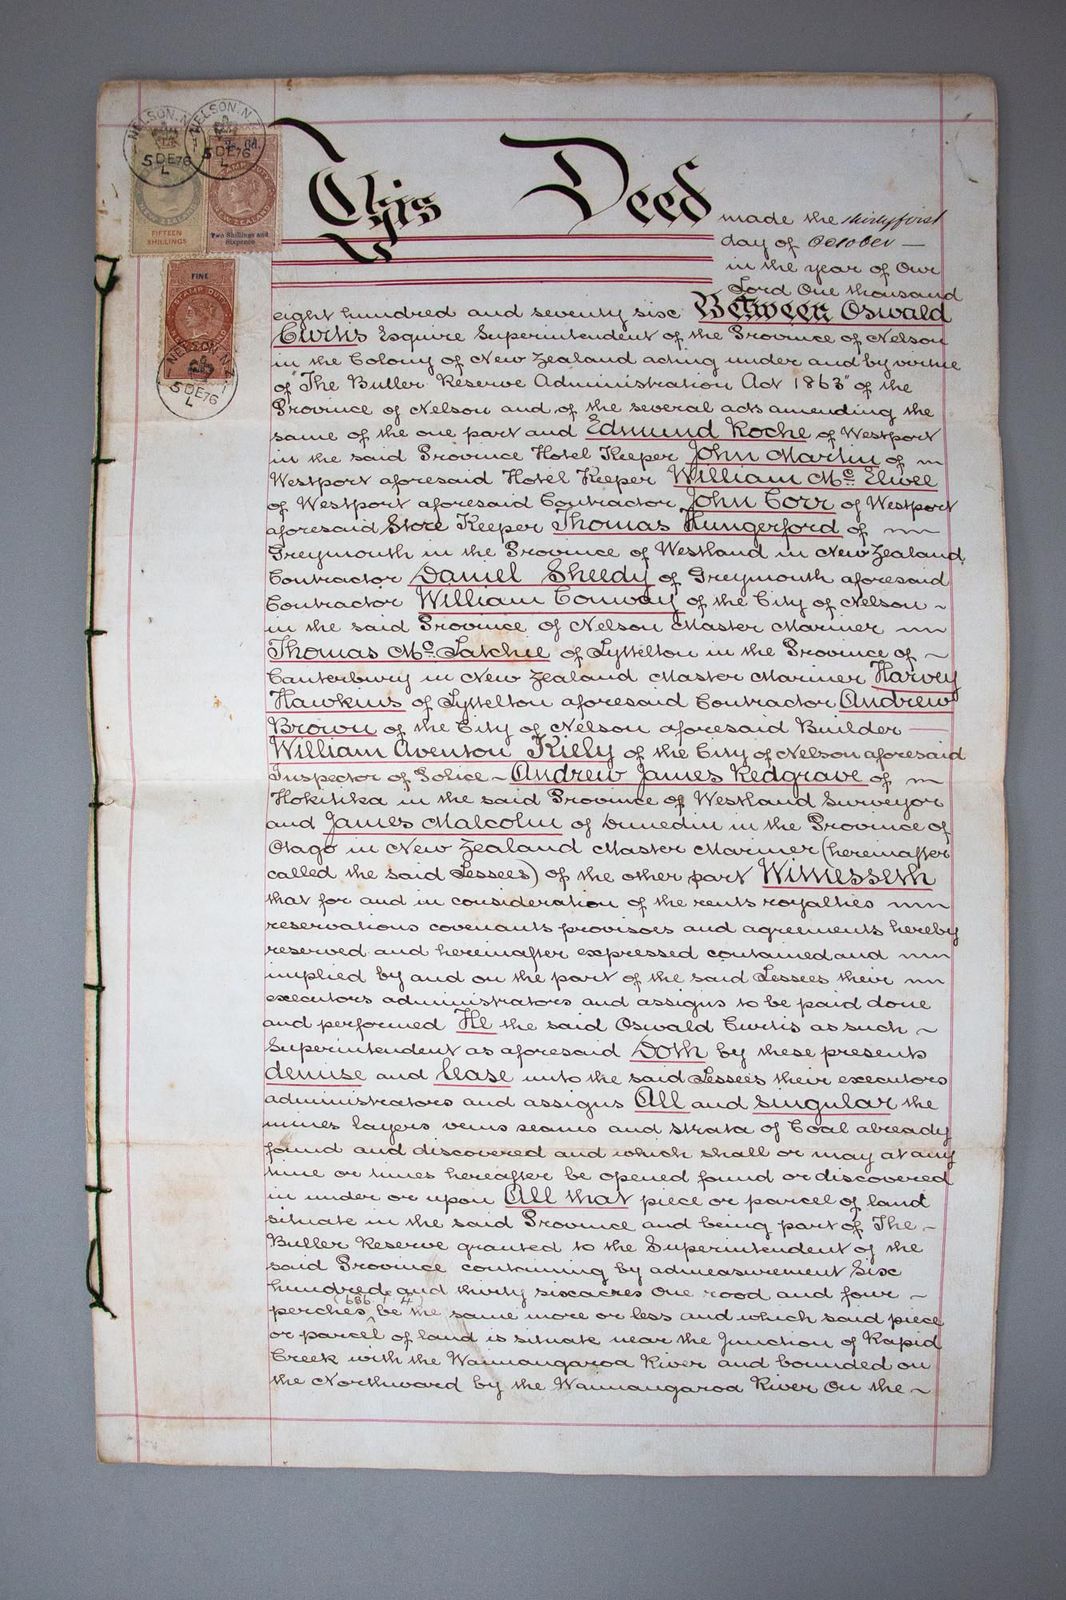 NELSON. N.Z
5 DE 76
L
NEW ZEALAND
FIFTEEN
SHILLINGS
NELSON. N.Z
5 DE 76
L
NEW ZEALAND
Two Shillings and
Sixpence
FINE
STAMP DUTY
NELSON. N.Z
5 DE 76
L
This Deed made the thirty first
day of October —
in the year of Our
Lord One thousand
eight hundred and seventy six Between Oswald
Curtis Esquire Superintendent of the Province of Nelson
in the Colony of New Zealand acting under and by virtue
of "The Buller Reserve Administration Act 1863" of the
Province of Nelson and of the several acts amending the
same of the one part and Edmund Roche of Westport
in the said Province Hotel Keeper John Martin of
Westport aforesaid Hotel Keeper William Mc Elwee
of Westport aforesaid Contractor John Corr of Westport
aforesaid Store Keeper Thomas Hungerford of
Greymouth in the Province of Westland in New Zealand
Contractor Daniel Sheedy of Greymouth aforesaid
Contractor William Conway of the City of Nelson
in the said Province of Nelson Master Mariner
Thomas Mc Latchie of Lyttelton in the Province of
Canterbury in New Zealand Master Mariner Harvey
Hawkins of Lyttelton aforesaid Contractor Andrew
Brown of the City of Nelson aforesaid Builder —
William Aventon Kiely of the City of Nelson aforesaid
Inspector of Police Andrew James Redgrave of
Hokitika in the said Province of Westland Surveyor
and James Malcolm of Dunedin in the Province of
Otago in New Zealand Master Mariner (hereinafter
called the said Lessees) of the other part Witnesseth
that for and in consideration of the rents royalties
reservations covenants provisoes and agreements hereby
reserved and hereinafter expressed contained and
implied by and on the part of the said Lessees their
executors administrators and assigns to be paid done
and performed He the said Oswald Curtis as such
Superintendent as aforesaid Doth by these presents
demise and lease unto the said Lessees their executors
administrators and assigns All and singular the
mines layers veins seams and strata of Coal already
found and discovered and which shall or may at any
time or times hereafter be opened found or discovered
in under or upon All that piece or parcel of land
situate in the said Province and being part of The
Buller Reserve granted to the Superintendent of the
said Province containing by admeasurement Six
hundred and thirty six acres One rood and four
perches (636 . 1 . 4) be the same more or less and which said piece
or parcel of land is situate near the Junction of Rapid
Creek with the Waimangaroa River and bounded on
the Northward by the Waimangaroa River On the